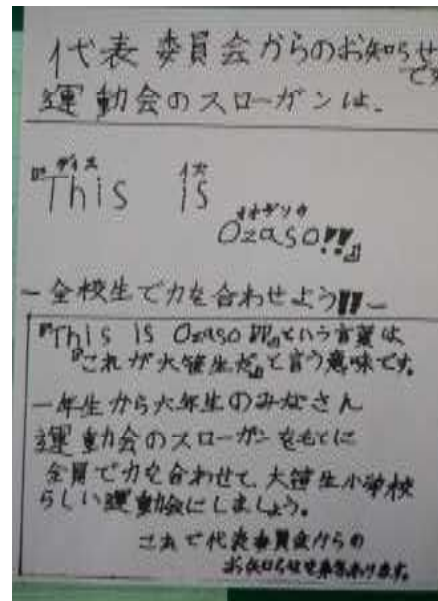 代表委員会からのお知らせ
です
運動会のスローガンは、
ディス イズ
『This is
オオザソウ
Ozaso!!』
－全校生で力を合わせよう!!－
『This is Ozaso!!!』という言葉は
『これが大笹生だ』と言う意味です。
一年生から六年生のみなさん
運動会のスローガンをもとに
全員で力を合わせて、大笹生小学校
らしい運動会にしましょう。
これで代表委員会からの
お知らせを終わります。